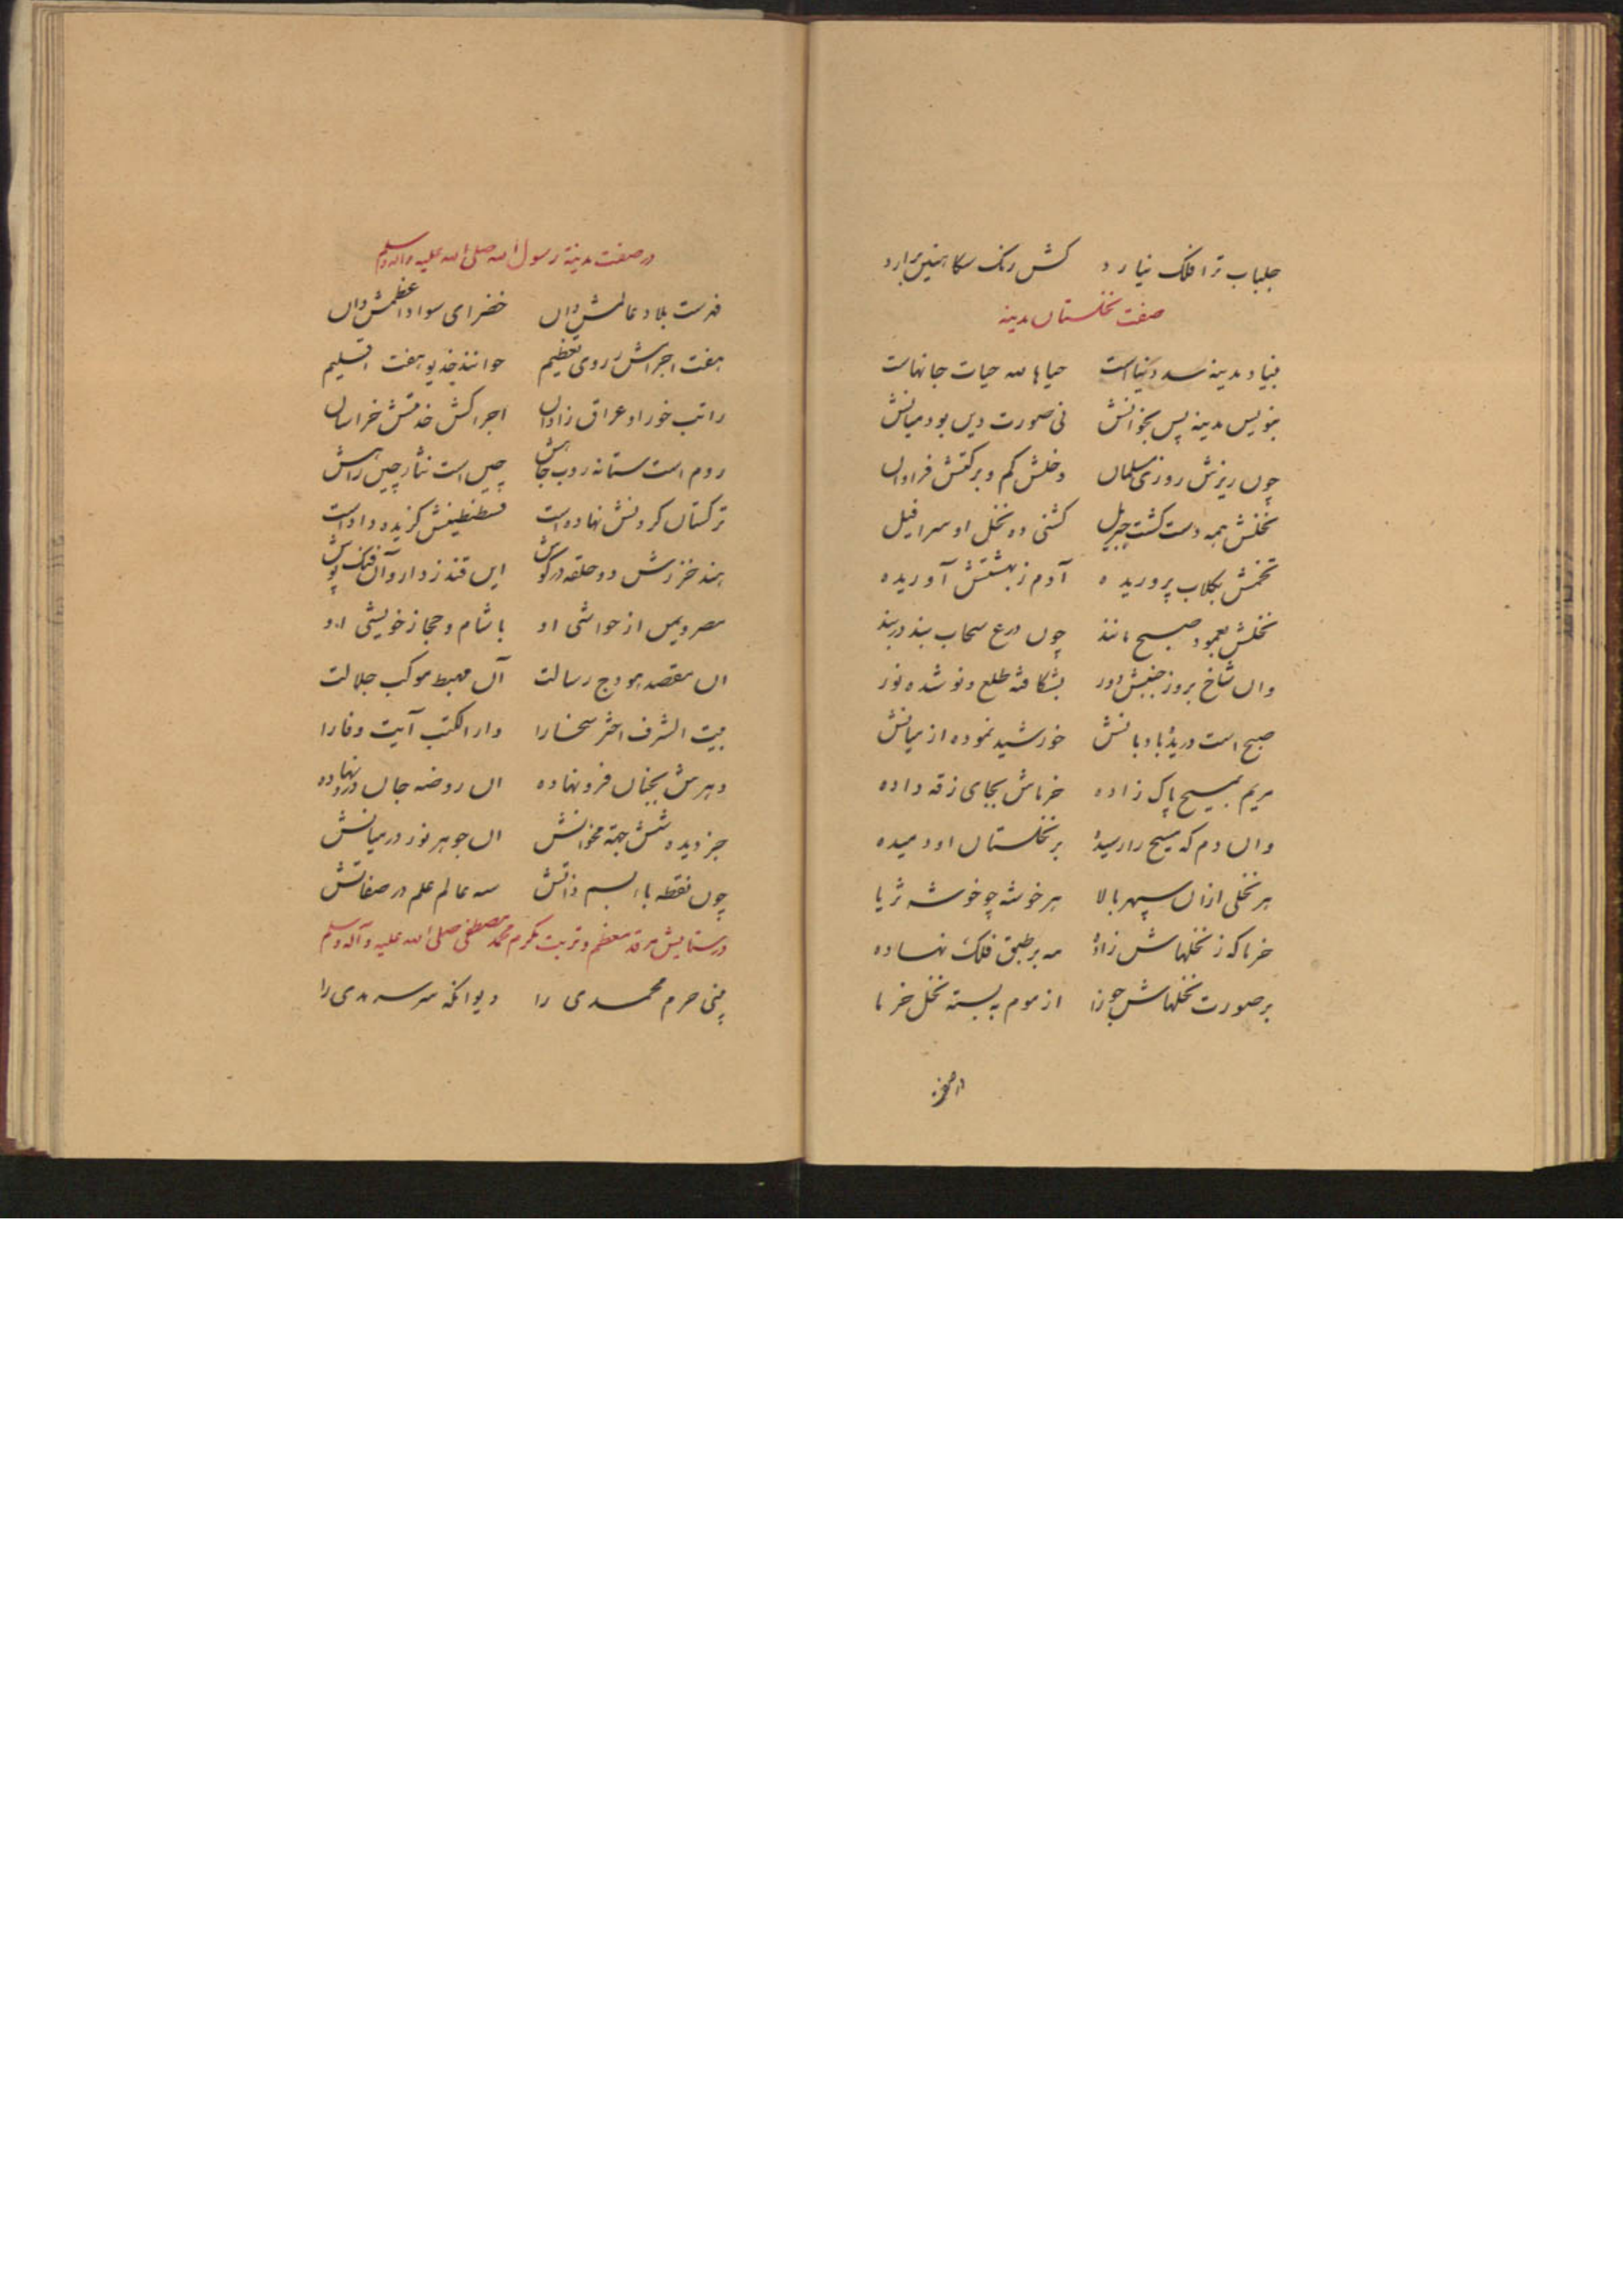 جلباب ترا فلک نیارد کش رنگ سکاهنین برارد
صفت نخلستان مدینه
بنیاد مدینه سد دنیاست حیاها الله حیات جانهاست
بنویس مدینه پس بخوانش نی صورت دین بود میانش
چون ریزش روزی سلمان دخلش کم و برکتش فراوان
نخلش همه دست کشت جبریل کشنی ده نخل او سرافیل
تخمش بکلاب پروریده آدم ز بهشتش آوریده
نخلش بعمود صبح مانند چون درع سحاب بند در بند
وان شاخ بروز جنبش دور بشکافته طلع و نو شده نور
صبح است دریده بادبانش خورشید نموده از میانش
مریم بمسیح پاک زاده خرماش بجای زقه داده
وان دم که مسیح را رسیده بر نخلستان او دمیده
هر نخلی ازان سپهر بالا هر خوشه چو خوشه ثریا
خرما که ز نخلهاش زاده مه بر طبق فلک نهاده
بر صورت نخلهاش جوزا از موم به بسته نخل خرما
در صفت مدینه رسول الله صلی الله علیه واله وسلم
فهرست بلاد عالمش دان خضرای سواد اعظمش دان
هفت اجراش ز روی تعظیم خوانند خدیو هفت اقلیم
راتب خور او عراق زادان اجراکش خدمتش خراسان
روم است ستانه روب جاهش چین است نثارچین راهش
ترکستان کردنش نهاده است قسطنطینش کزیده داد است
هند خزرش دو حلقه در کوش این قندز دار وآن فنک پوش
مصر ویمن از حواشی او با شام و حجاز خویشی او
ان مقصد هودج رسالت آن مهبط موکب جلالت
بیت الشرف اختر سخا را دار الکتب آیت وفا را
دهرش بجنان فرو نهاده ان روضه جان درو نهاده
جز دیده شش جهة مخوانش ان جوهر نور در میانش
چون نقطه باء بسم ذاتش سه عالم علم در صفاتش
در ستایش مرقد معظم و تربت مکرم محمد مصطفی صلی الله علیه وآله وسلم
بینی حرم محمدی را دیوانکه سر سرمدی را